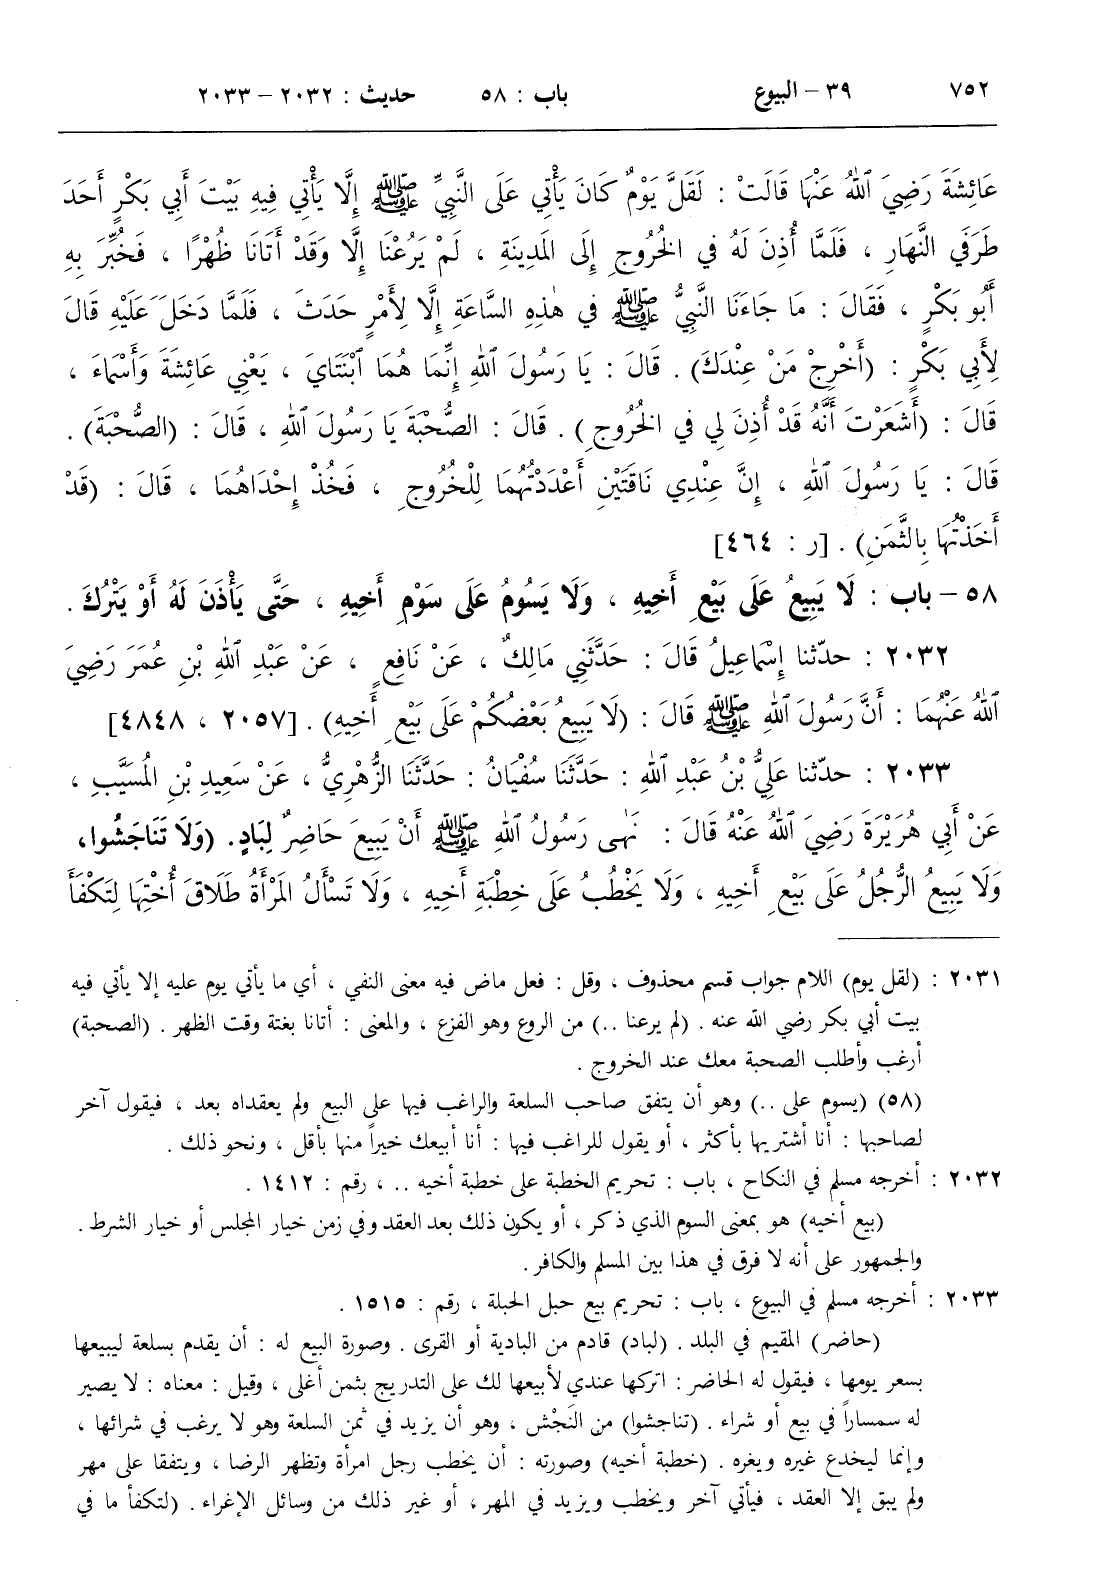 ٧٥٢ ٣٩ – البيوع باب : ٥٨ حديث : ٢٠٣٢ – ٢٠٣٣
عَائِشَةَ رَضِيَ ٱللهُ عَنْهَا قَالَتْ : لَقَلَّ يَوْمٌ كَانَ يَأْتِي عَلَى النَّبِيِّ ﷺ إِلَّا يَأْتِي فِيهِ بَيْتَ أَبِي بَكْرٍ أَحَدَ
طَرَفَيِ النَّهَارِ ، فَلَمَّا أُذِنَ لَهُ فِي الْخُرُوجِ إِلَى الْمَدِينَةِ ، لَمْ يَرُعْنَا إِلَّا وَقَدْ أَتَانَا ظُهْرًا ، فَخُبِّرَ بِهِ
أَبُو بَكْرٍ ، فَقَالَ : مَا جَاءَنَا النَّبِيُّ ﷺ فِي هٰذِهِ السَّاعَةِ إِلَّا لِأَمْرٍ حَدَثَ ، فَلَمَّا دَخَلَ عَلَيْهِ قَالَ
لِأَبِي بَكْرٍ : (أَخْرِجْ مَنْ عِنْدَكَ) . قَالَ : يَا رَسُولَ ٱللهِ إِنَّمَا هُمَا ٱبْنَتَايَ ، يَعْنِي عَائِشَةَ وَأَسْمَاءَ ،
قَالَ : (أَشَعَرْتَ أَنَّهُ قَدْ أُذِنَ لِي فِي الْخُرُوجِ) . قَالَ : الصُّحْبَةَ يَا رَسُولَ ٱللهِ ، قَالَ : (الصُّحْبَةَ) .
قَالَ : يَا رَسُولَ ٱللهِ ، إِنَّ عِنْدِي نَاقَتَيْنِ أَعْدَدْتُهُمَا لِلْخُرُوجِ ، فَخُذْ إِحْدَاهُمَا ، قَالَ : (قَدْ
أَخَذْتُهَا بِالثَّمَنِ) . [ر : ٤٦٤]
٥٨ – باب : لَا يَبِيعُ عَلَى بَيْعِ أَخِيهِ ، وَلَا يَسُومُ عَلَى سَوْمِ أَخِيهِ ، حَتَّى يَأْذَنَ لَهُ أَوْ يَتْرُكَ .
٢٠٣٢ : حدّثنا إِسْمَاعِيلُ قَالَ : حَدَّثَنِي مَالِكٌ ، عَنْ نَافِعٍ ، عَنْ عَبْدِ ٱللهِ بْنِ عُمَرَ رَضِيَ
ٱللهُ عَنْهُمَا : أَنَّ رَسُولَ ٱللهِ ﷺ قَالَ : (لَا يَبِيعُ بَعْضُكُمْ عَلَى بَيْعِ أَخِيهِ) . [٢٠٥٧ ، ٤٨٤٨]
٢٠٣٣ : حدّثنا عَلِيُّ بْنُ عَبْدِ ٱللهِ : حَدَّثَنَا سُفْيَانُ : حَدَّثَنَا الزُّهْرِيُّ ، عَنْ سَعِيدِ بْنِ الْمُسَيَّبِ ،
عَنْ أَبِي هُرَيْرَةَ رَضِيَ ٱللهُ عَنْهُ قَالَ : نَهٰى رَسُولُ ٱللهِ ﷺ أَنْ يَبِيعَ حَاضِرٌ لِبَادٍ. (وَلَا تَنَاجَشُوا،
وَلَا يَبِيعُ الرَّجُلُ عَلَى بَيْعِ أَخِيهِ ، وَلَا يَخْطُبُ عَلَى خِطْبَةِ أَخِيهِ ، وَلَا تَسْأَلُ الْمَرْأَةُ طَلَاقَ أُخْتِهَا لِتَكْفَأَ
٢٠٣١ : (لقل يوم) اللام جواب قسم محذوف ، وقل : فعل ماض فيه معنى النفي ، أي ما يأتي يوم عليه إلا يأتي فيه
بيت أبي بكر رضي الله عنه . (لم يرعنا ..) من الروع وهو الفزع ، والمعنى : أتانا بغتة وقت الظهر . (الصحبة)
أرغب وأطلب الصحبة معك عند الخروج .
(٥٨) (يسوم على ..) وهو أن يتفق صاحب السلعة والراغب فيها على البيع ولم يعقداه بعد ، فيقول آخر
لصاحبها : أنا أشتريها بأكثر ، أو يقول للراغب فيها : أنا أبيعك خيراً منها بأقل ، ونحو ذلك .
٢٠٣٢ : أخرجه مسلم في النكاح ، باب : تحريم الخطبة على خطبة أخيه .. ، رقم : ١٤١٢ .
(بيع أخيه) هو بمعنى السوم الذي ذكر ، أو يكون ذلك بعد العقد وفي زمن خيار المجلس أو خيار الشرط .
والجمهور على أنه لا فرق في هذا بين المسلم والكافر .
٢٠٣٣ : أخرجه مسلم في البيوع ، باب : تحريم بيع حبل الحبلة ، رقم : ١٥١٥ .
(حاضر) المقيم في البلد . (لباد) قادم من البادية أو القرى . وصورة البيع له : أن يقدم بسلعة ليبيعها
بسعر يومها ، فيقول له الحاضر : اتركها عندي لأبيعها لك على التدريج بثمن أغلى ، وقيل : معناه : لا يصير
له سمساراً في بيع أو شراء . (تناجشوا) من النَجْش ، وهو أن يزيد في ثمن السلعة وهو لا يرغب في شرائها ،
وإنما ليخدع غيره ويغره . (خطبة أخيه) وصورته : أن يخطب رجل امرأة وتظهر الرضا ، ويتفقا على مهر
ولم يبق إلا العقد ، فيأتي آخر ويخطب ويزيد في المهر ، أو غير ذلك من وسائل الإغراء . (لتكفأ ما في